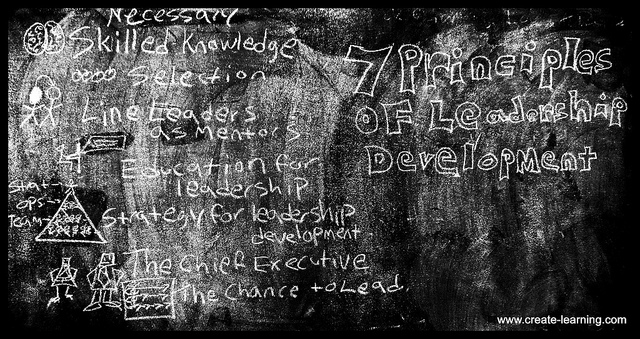 Necessary
Skilled Knowledge
Selection
Line Leaders
as Mentors
Education for
leadership
Strat
ops
Team
Strategy for leadership
development
The Chief Executive
The Chance to Lead.
7 Principles
OF Leadership
Development
www.create-learning.com